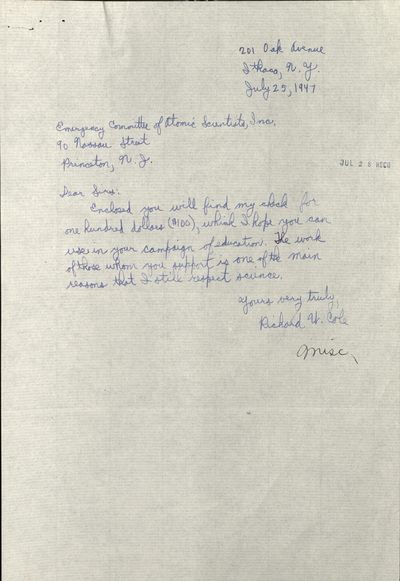 201 Oak Avenue
Ithaca, N.Y.
July 25, 1947
Emergency Committee of Atomic Scientists, Inc.
90 Nassau Street
Princeton, N.J.
JUL 28 RECD
Dear Sirs:
Enclosed you will find my check for
one hundred dollars ($100), which I hope you can
use in your campaign of education. The work
of those whom you support is one of the main
reasons that I still respect science.
Yours very truly,
Richard W. Cole
Misc.